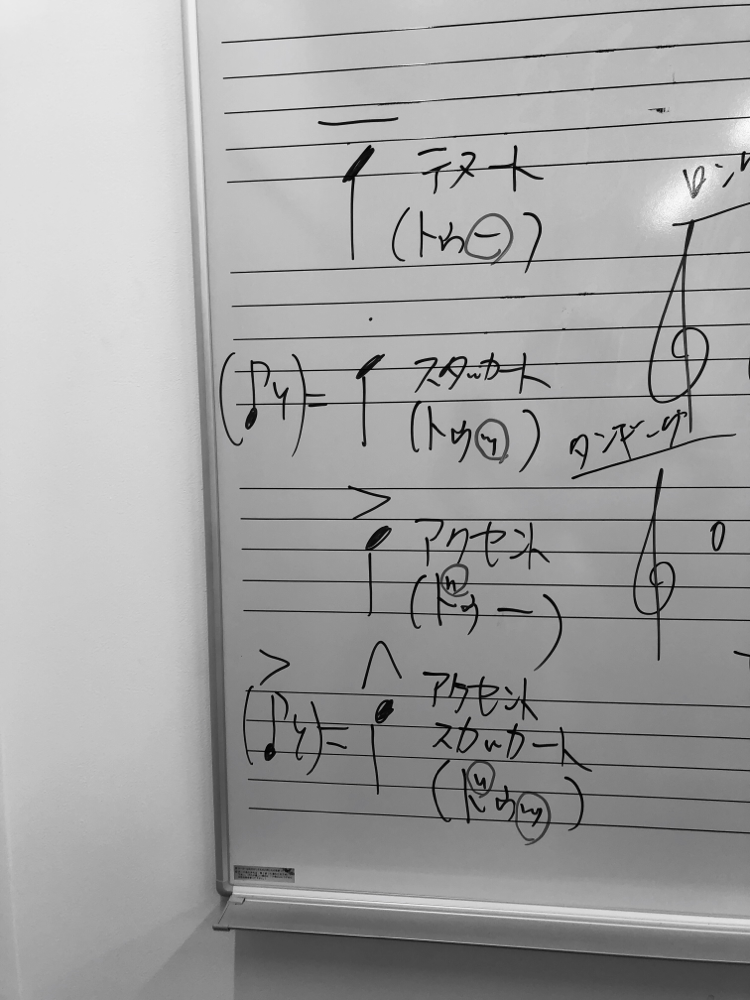 テヌート
(トゥー)
スタッカート
(トゥッ)
タンギング
アクセント
(トゥー)
アクセント
スタッカート
(トゥッ)